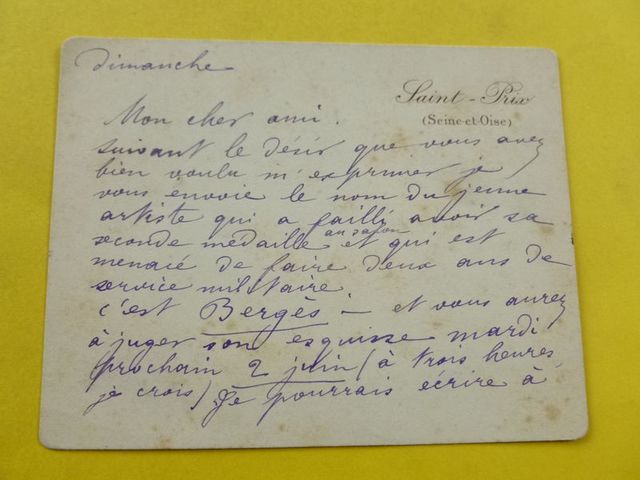 Dimanche
Saint-Prix
(Seine-et-Oise)
Mon cher ami.
suivant le désir que vous avez
bien voulu m'exprimer je
vous envoie le nom du jeune
artiste qui a failli avoir sa
seconde médaille au salon et qui est
menacé de faire deux ans de
service militaire
c'est Bergès - et vous aurez
à juger son esquisse mardi
prochain 2 juin (à trois heures
je crois) Je pourrais écrire à